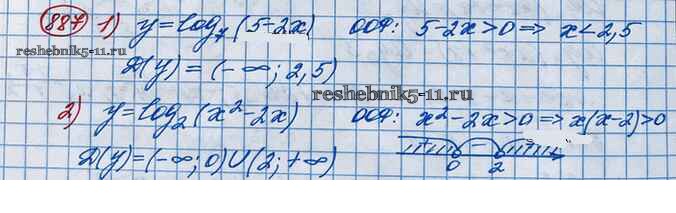 887 1) y=log₇(5-2x) ООФ: 5-2x>0 => x<2,5
reshebnik5-11.ru
D(y) = (-∞; 2,5)
reshebnik5-11.ru
2) y=log₂(x²-2x) ООФ: x²-2x>0 => x(x-2)>0
D(y)=(-∞; 0)U(2; +∞)
+ - +
0 2